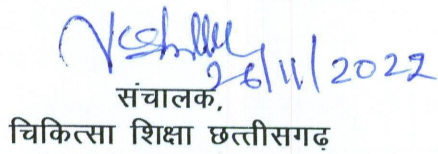 26/11/2022
संचालक,
चिकित्सा शिक्षा छत्तीसगढ़